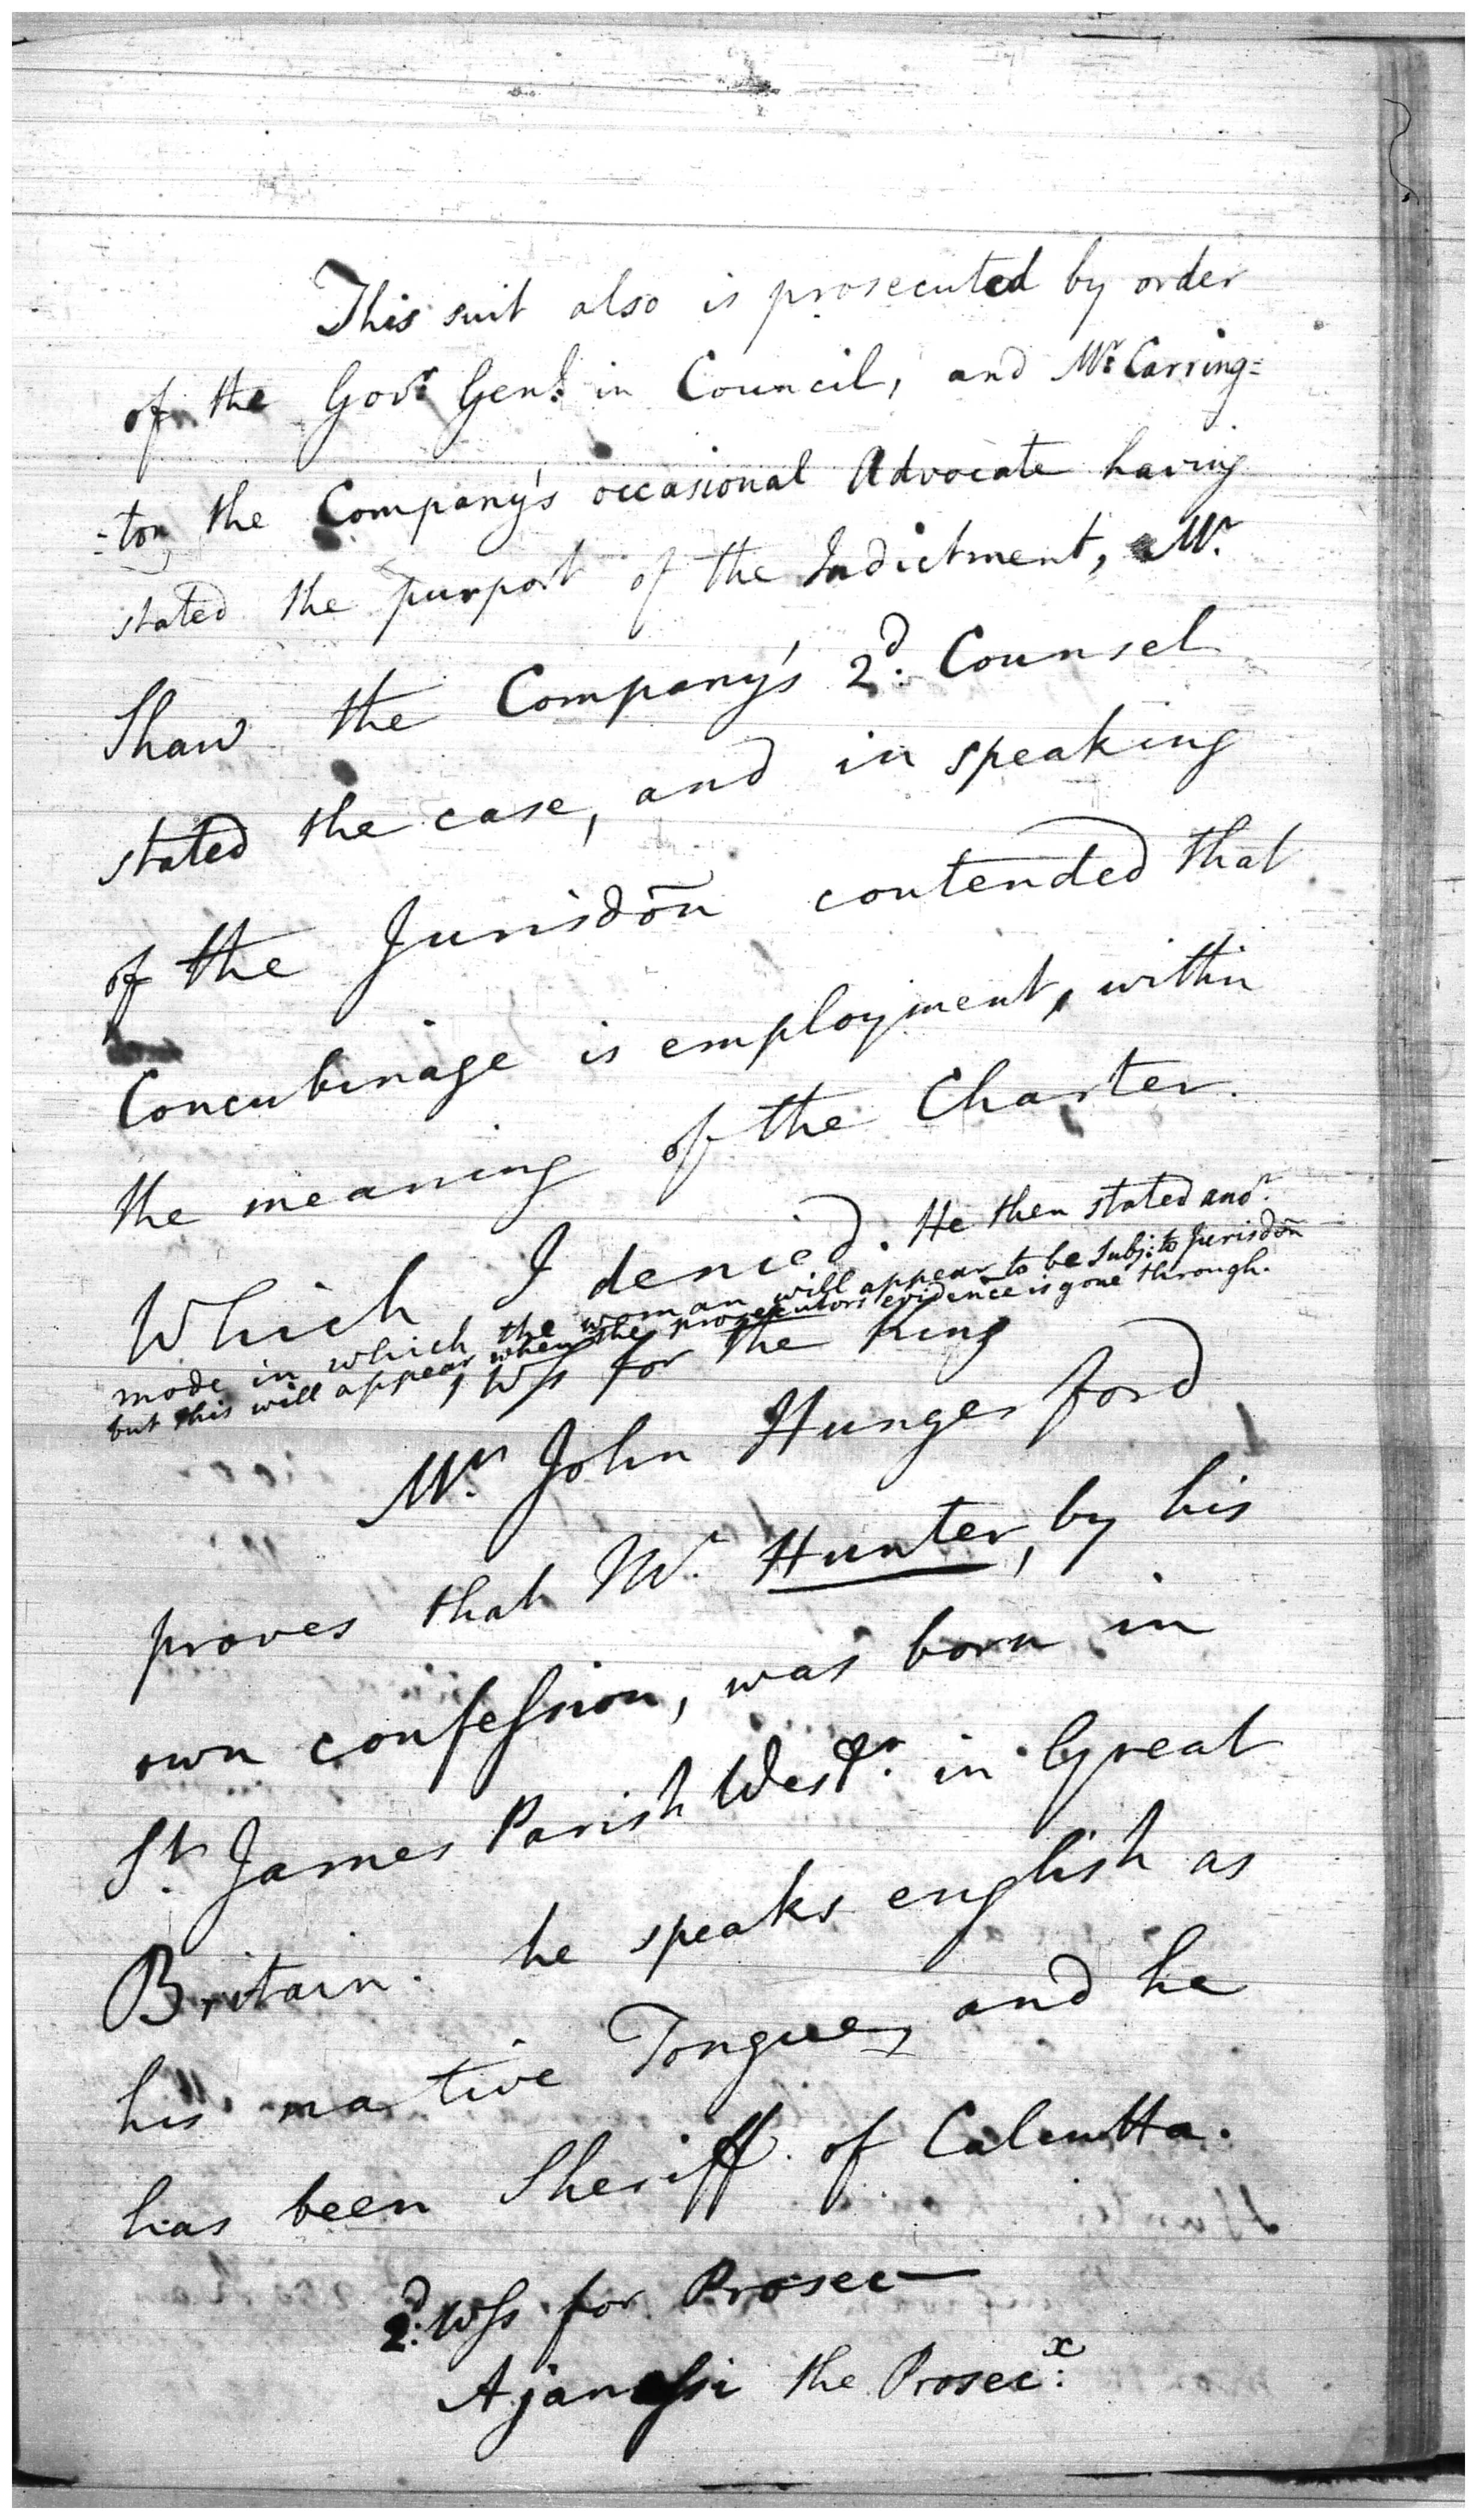 This suit also is prosecuted by order
of the Govr. Genl. in Council, and Mr. Carring=
=ton, the Company's occasional Advocate having
stated the purport of the Indictment, Mr.
Shaw the Company's 2d. Counsel
stated the case, and in speaking
of the Jurisdon contended that
Concubinage is employment, within
the meaning of the Charter.
Which I denied. He then stated anor.
mode in which the woman will appear to be Subj: to Jurisdon
but this will appear when the prosecutors evidence is gone through.
1 Wss for the King
Mr. John Hungerford
proves that Mr. Hunter, by his
own confession, was born in
St. James Parish Westr. in Great
Britain. he speaks english as
his native Tongue, and he
has been Sheriff of Calcutta.
2d: Wss for Prosec—
Ajanassi the Prosecx: